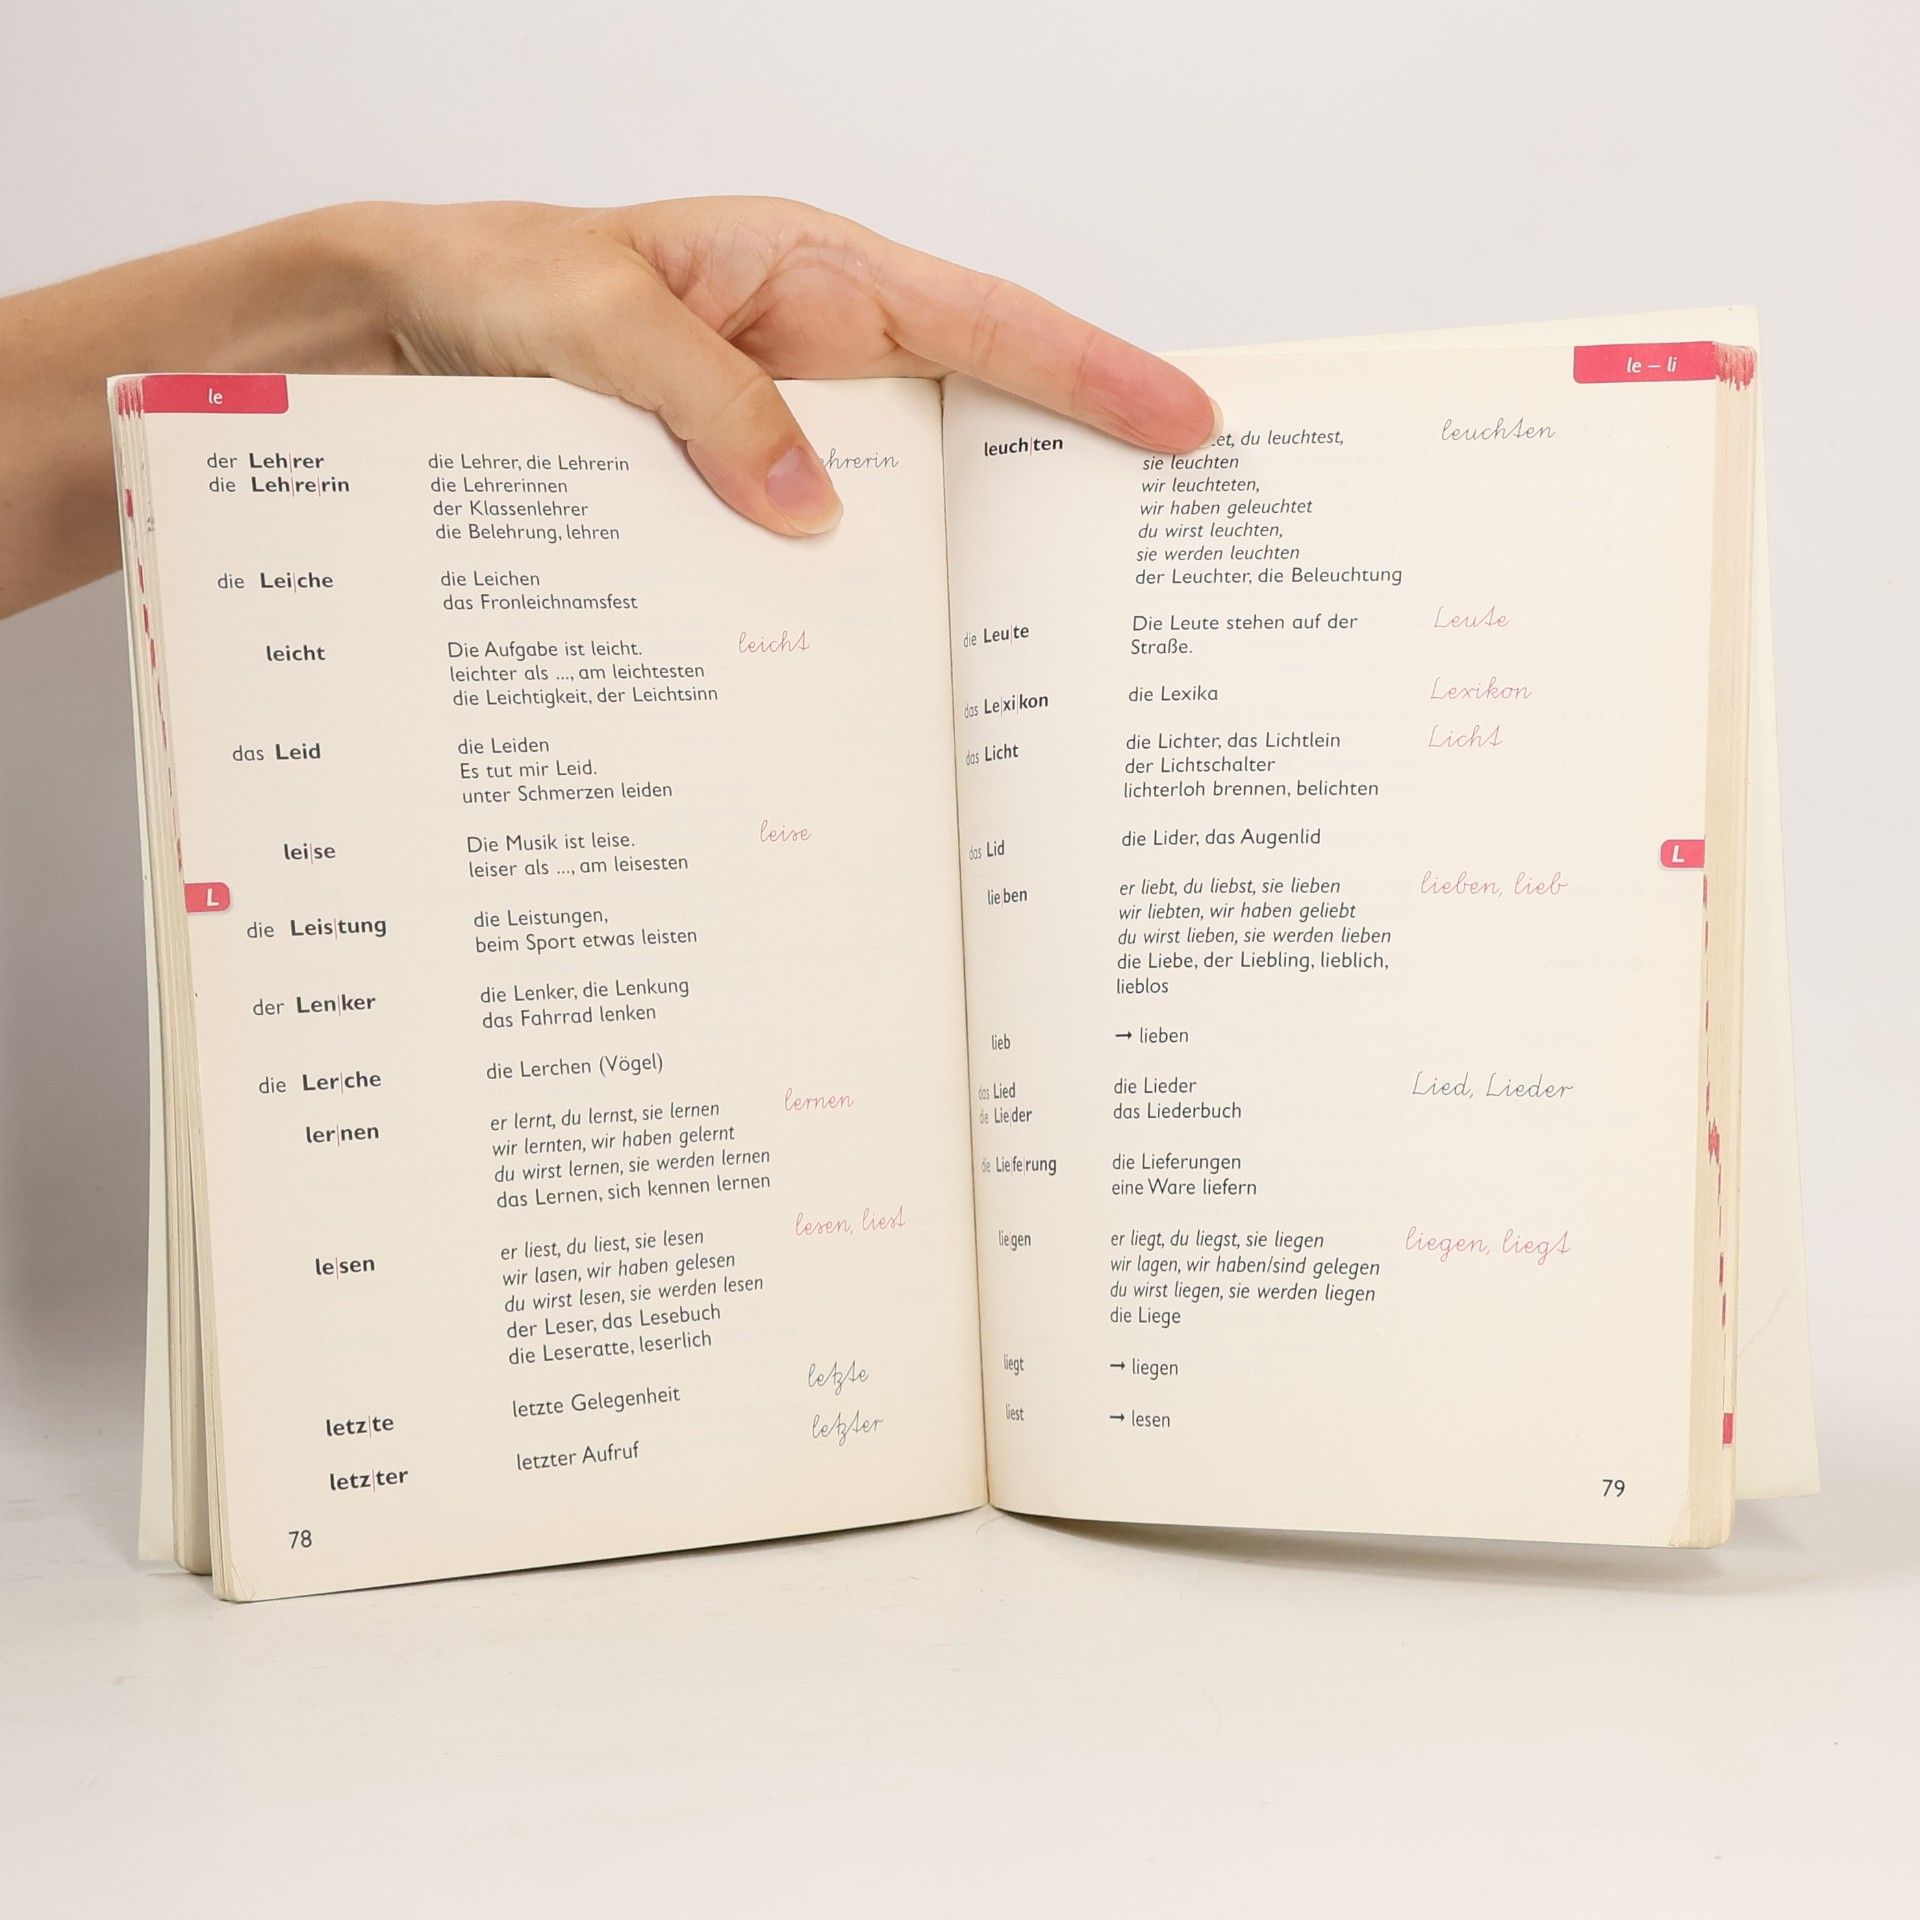 le
der Leh|rer die Lehrer, die Lehrerin
die Leh|re|rin die Lehrerinnen
der Klassenlehrer
die Belehrung, lehren
die Lei|che die Leichen
das Fronleichnamsfest
leicht Die Aufgabe ist leicht. leicht
leichter als ..., am leichtesten
die Leichtigkeit, der Leichtsinn
das Leid die Leiden
Es tut mir Leid.
unter Schmerzen leiden
lei|se Die Musik ist leise. leise
leiser als ..., am leisesten
L
die Leis|tung die Leistungen,
beim Sport etwas leisten
der Len|ker die Lenker, die Lenkung
das Fahrrad lenken
die Ler|che die Lerchen (Vögel)
ler|nen er lernt, du lernst, sie lernen lernen
wir lernten, wir haben gelernt
du wirst lernen, sie werden lernen
das Lernen, sich kennen lernen
le|sen er liest, du liest, sie lesen lesen, liest
wir lasen, wir haben gelesen
du wirst lesen, sie werden lesen
der Leser, das Lesebuch
die Leseratte, leserlich
letz|te letzte Gelegenheit letzte
letz|ter letzter Aufruf letzter
78
le – li
leuch|ten du leuchtest, leuchten
sie leuchten
wir leuchteten,
wir haben geleuchtet
du wirst leuchten,
sie werden leuchten
der Leuchter, die Beleuchtung
die Leu|te Die Leute stehen auf der Leute
Straße.
das Le|xi|kon die Lexika Lexikon
das Licht die Lichter, das Lichtlein Licht
der Lichtschalter
lichterloh brennen, belichten
das Lid die Lider, das Augenlid
L
lie|ben er liebt, du liebst, sie lieben lieben, lieb
wir liebten, wir haben geliebt
du wirst lieben, sie werden lieben
die Liebe, der Liebling, lieblich,
lieblos
lieb → lieben
das Lied die Lieder Lied, Lieder
die Lie|der das Liederbuch
die Lie|fe|rung die Lieferungen
eine Ware liefern
lie|gen er liegt, du liegst, sie liegen liegen, liegt
wir lagen, wir haben/sind gelegen
du wirst liegen, sie werden liegen
die Liege
liegt → liegen
liest → lesen
79